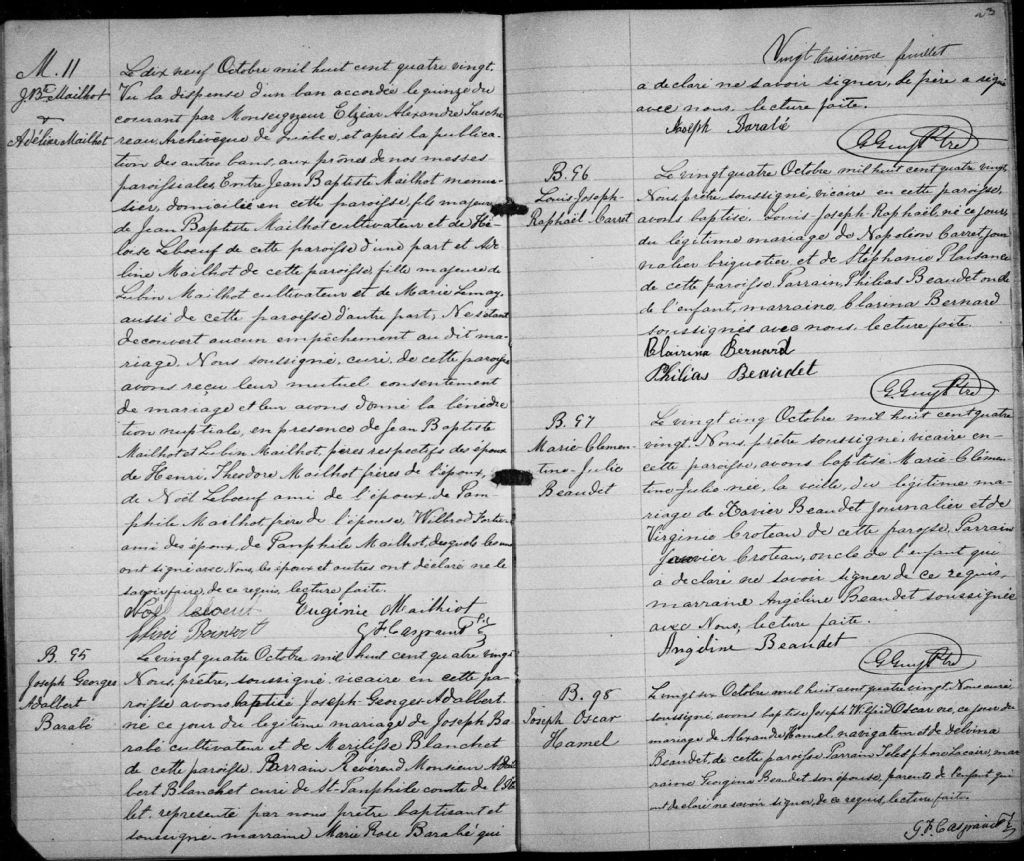 M. 11
J. Bte Mailhot
&
Adéline Mailhot
Le dix neuf Octobre mil huit cent quatre vingt.
Vu la dispense d'un ban accordée le quinze du
courant par Monseigneur Elzéar Alexandre Tasche
reau Archevêque de Québec, et après la publica-
tion des autres bans, aux prônes de nos messes
paroissiales Entre Jean Baptiste Mailhot menui-
sier, domicilié en cette paroisse, fils majeur
de Jean Baptiste Mailhot cultivateur et de Hé-
loise Leboeuf de cette paroisse d'une part et Adé
line Mailhot de cette paroisse fille majeure de
Lubin Mailhot cultivateur et de Marie Lemay,
aussi de cette paroisse d'autre part; Ne s'étant
découvert aucun empêchement au dit ma-
riage, Nous soussigné, curé, de cette paroisse
avons reçu leur mutuel consentement
de mariage et leur avons donné la bénédic
tion nuptiale, en présence de Jean Baptiste
Mailhot et Lubin Mailhot, pères respectifs des époux
de Henri, Théodore Mailhot frères de l'époux,
de Noël Leboeuf ami de l'époux, de Pam-
phile Mailhot frère de l'épouse, Wilbrod Fortier
ami des époux, de Pamphile Mailhot, desquels les uns
ont signé avec Nous, les époux et autres ont déclaré ne le
savoir faire, de ce requis, lecture faite.
Noël Leboeuf Eugénie Mailhiot
G F Casgrain Ptre
B. 95
Joseph Georges
Adalbert
Barabé
Le vingt quatre Octobre mil huit cent quatre vingt
Nous, prêtre, soussigné, vicaire en cette pa-
roisse avons baptisé Joseph Georges Adalbert
né ce jour du légitime mariage de Joseph Ba
rabé cultivateur et de Mérilisse Blanchet
de cette paroisse. Parrain Révérend Monsieur Adal
bert Blanchet curé de St-Pamphile comté de l'Is
let. représenté par nous prêtre baptisant et
soussigné. marraine Marie Rose Barabé qui
23
Vingt troisième feuillet
a déclaré ne savoir signer, le père a signé
avec nous. lecture faite.
Joseph Barabé
G Guy Ptre
B. 96
Louis-Joseph-
Raphaël Carret
Le vingt quatre Octobre mil huit cent quatre vingt
Nous, prêtre, soussigné, vicaire en cette paroisse,
avons baptisé, Louis Joseph Raphaël, né ce jour,
du légitime mariage de Napoléon Carret, jour
nalier briquetier et de Stéphanie Plaisance
de cette paroisse, Parrain, Philias Beaudet oncle
de l'enfant, marraine, Clarina Bernard
soussignés avec nous, lecture faite.
Clairina Bernard
Philias Beaudet
G. Guy Ptre
B. 97
Marie-Clemen-
tine-Julie
Beaudet
Le vingt cinq Octobre mil huit cent quatre
vingt, Nous, prêtre soussigné, vicaire en-
cette paroisse, avons baptisé Marie Clémen-
tine Julie née, la veille, du légitime ma-
riage de Xavier Beaudet Journalier et de
Virginie Croteau de cette paroisse, Parrain
Croteau, oncle de l'enfant qui
a déclaré ne savoir signer de ce requis,
marraine Angéline Beaudet soussignée
avec Nous; lecture faite.
Angéline Beaudet
G Guy Ptre
B. 98
Joseph Oscar
Hamel
Le vingt six Octobre mil huit cent quatre vingt. Nous curé
soussigné, avons baptisé Joseph Wilfrid Oscar né, ce jour du
mariage de Alexandre Hamel, navigateur et de Delvina
Beaudet, de cette paroisse Parrain Télesphore Lacaire, mar
raine Georgina Beaudet son épouse, parents de l'enfant qui
ont déclaré ne savoir signer, de ce requis, lecture faite.
G. F. Casgrain Ptre